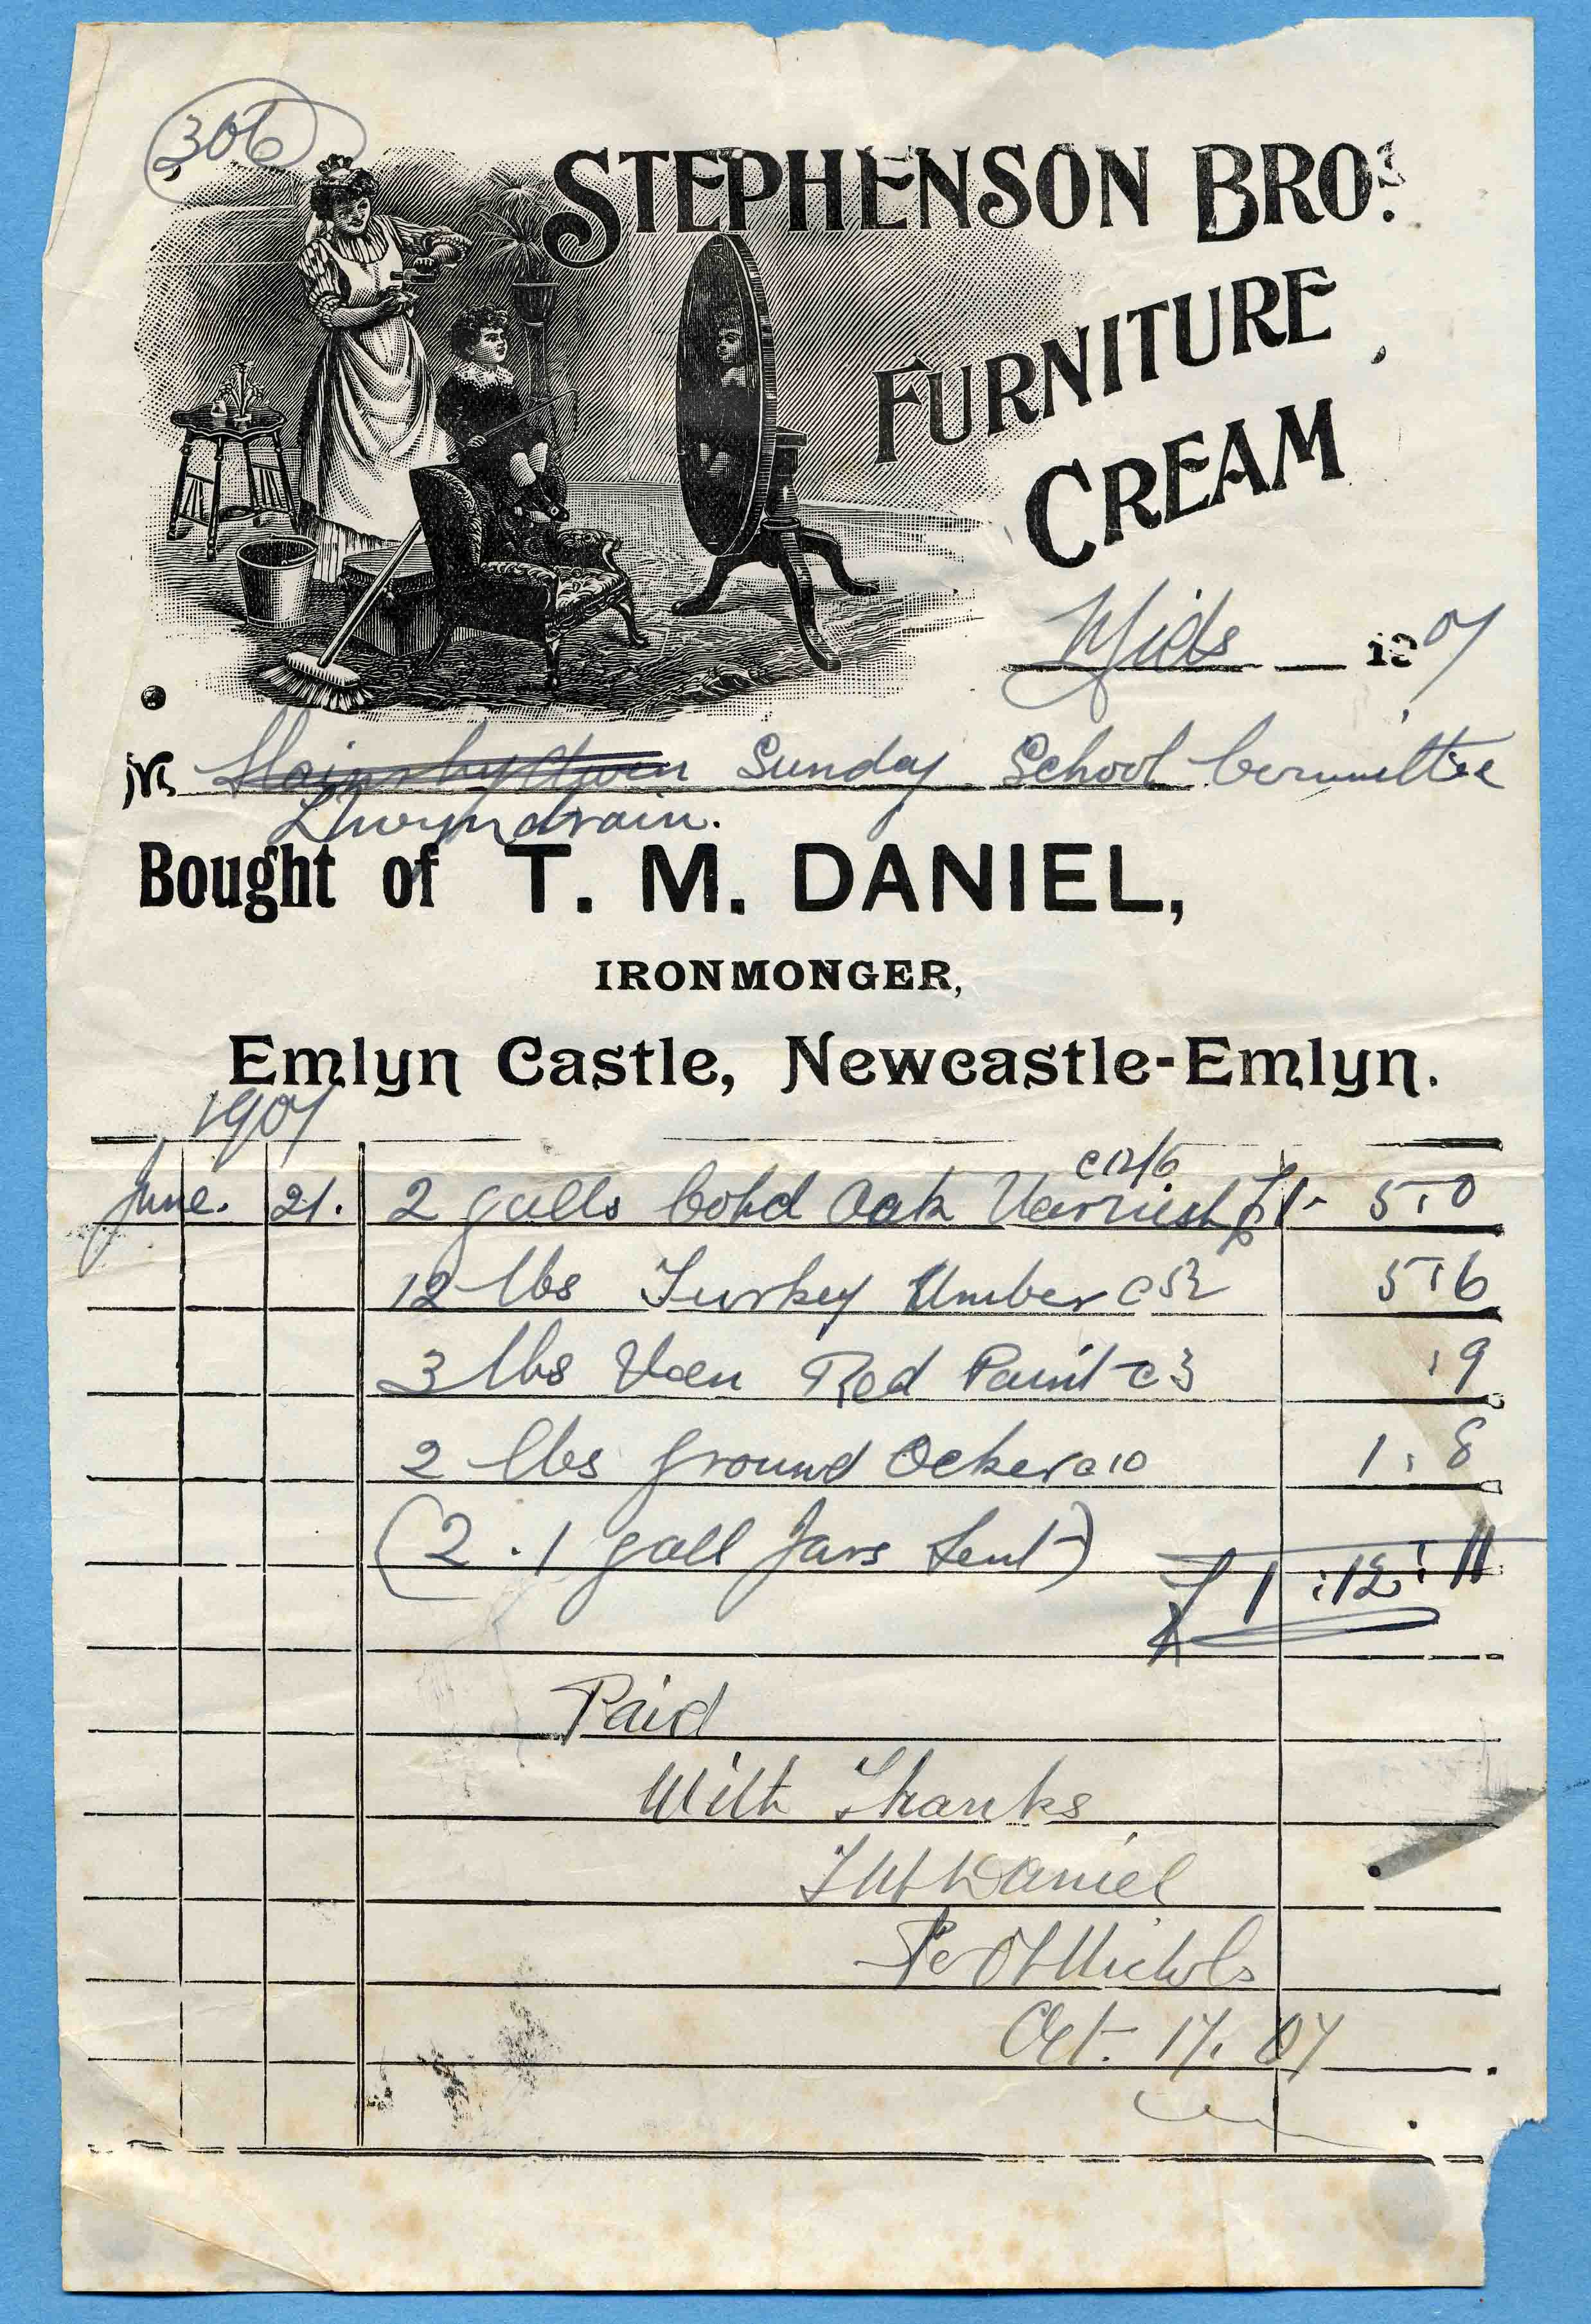 306
STEPHENSON BROS.
FURNITURE
CREAM
Mids 1907
M Sunday School Committee
Llwyndrain.
Bought of T. M. DANIEL,
IRONMONGER,
Emlyn Castle, Newcastle-Emlyn.
1907
June. 21. 2 galls Oak Varnish 12/6 £1 - 5 : 0
12 lbs Turkey Umber c 5½ 5 : 6
3 lbs Ven Red Paint c 3 : 9
2 lbs ground Ocker c 10 1 : 8
(2 . 1 gall Jars Lent)
£1 : 12 : 11
Paid
With Thanks
T M Daniel
Per Nichols
Oct. 17. 07